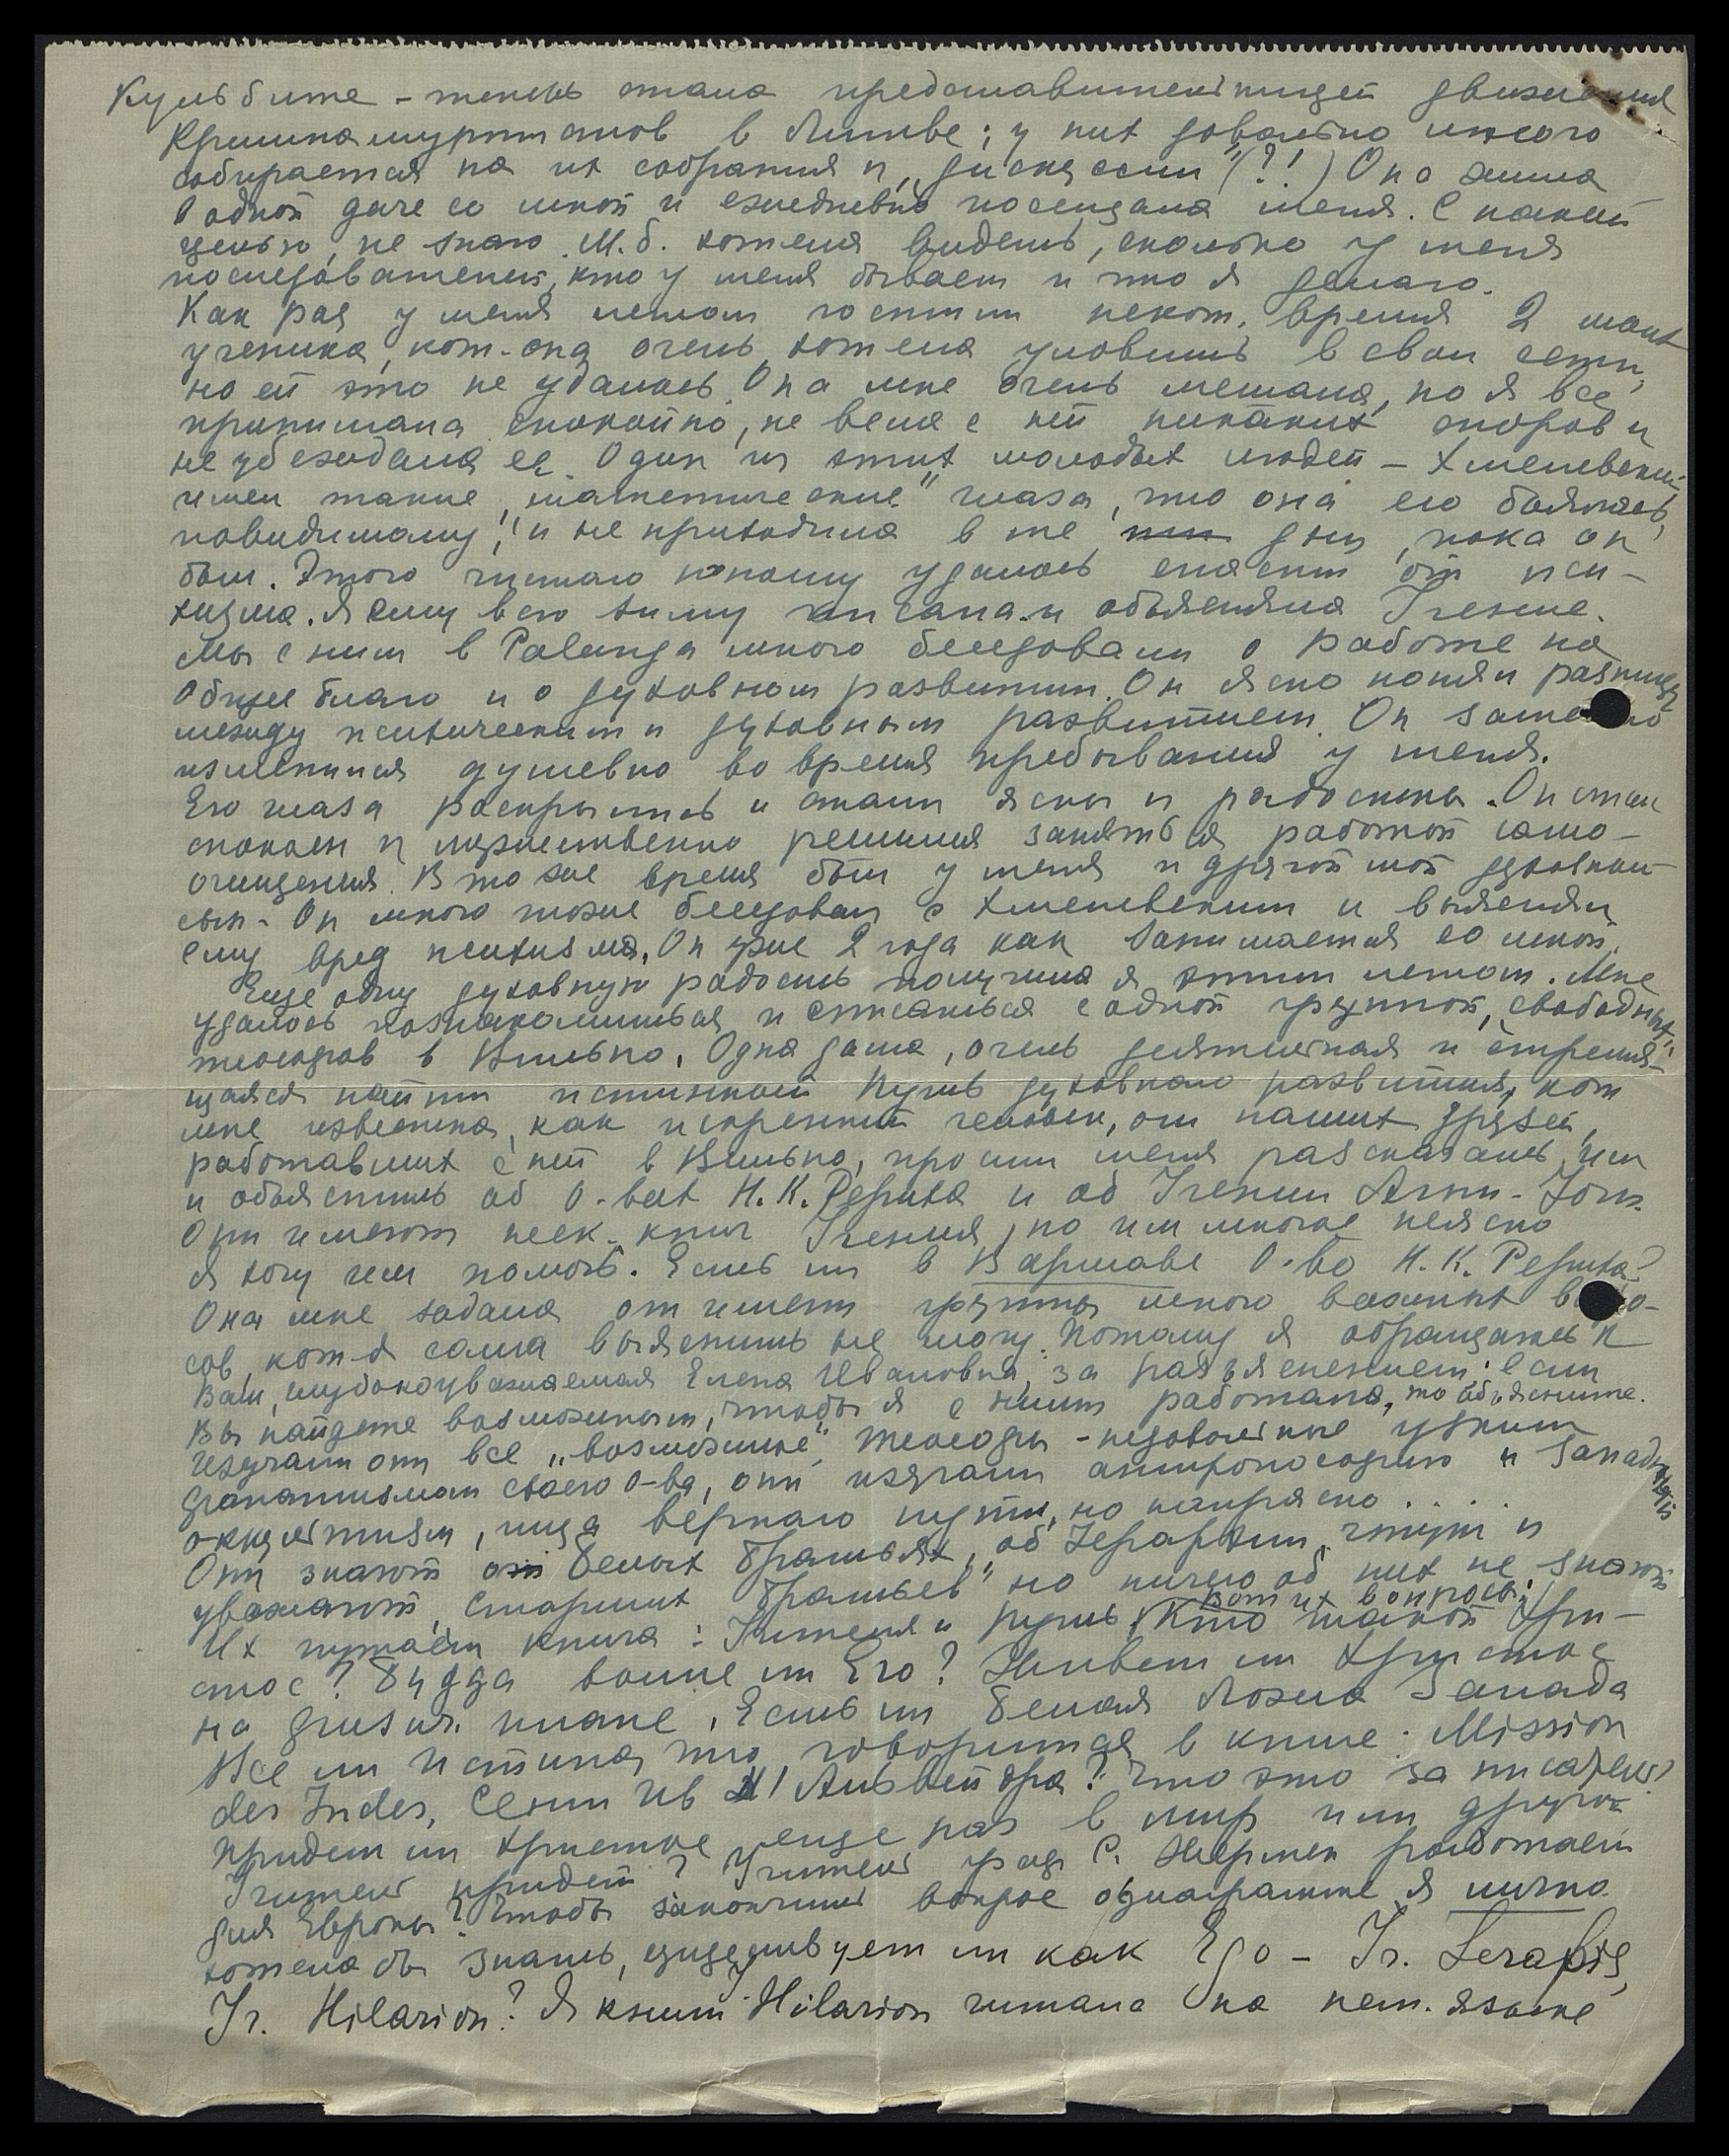 Кульбите - теперь стала представительницей движения
Кришнамуртистов в Литве; у них довольно много
собирается на их собрания и „дискуссии" (?!) Она жила
в одной даче со мной и ежедневно посещала меня. С какой
целью, не знаю. М.б. хотела видеть, сколько у меня
последователей, кто у меня бывает и что я делаю.
Как раз у меня летом гостили некот. время 2 моих
ученика, кот. она очень хотела уловить в свои сети,
но ей это не удалось. Она мне очень мешала, но я все
принимала спокойно, не вела с ней никаких споров и
не убеждала ее. Один из этих молодых людей - Хмелевский,
имел такие „магнетические" глаза, что она его боялась,
повидимому! и не приходила в те дни, пока он
был. Этого чистаго юношу удалось спасти от пси-
хизма. Я ему всю зиму писала и объясняла Учение.
Мы с ним в Palanga много беседовали о работе на
Общее благо и о духовном развитии. Он ясно понял разницу
между психическим и духовным развитием. Он заметно
изменился душевно во время пребывания у меня.
Его глаза раскрылись и стали ясны и радостны. Он стал
спокоен и мужественно решился заняться работой само-
очищения. В то же время был у меня и другой мой духовный
сын. Он много тоже беседовал с Хмелевским и выяснял
ему вред психизма. Он уже 2 года как занимается со мной.
Еще одну духовную радость получила я этим летом. Мне
удалось познакомиться и списаться с одной группой „свободных"
теософов в Вильно. Одна дама, очень деятельная и стремя-
щаяся найти истинный Путь духовнаго развития, кот.
мне известна, как искренний человек, от наших друзей,
работавших с ней в Вильно, просит меня рассказать им
и объяснить об О-вах Н.К. Рериха и об Учении Агни-Йоги.
Они имеют неск. книг Учения, но им многое неясно
Я хочу им помочь. Есть ли в Варшаве О-во Н.К. Рериха?
Она мне задала от имени группы много важных вопро-
сов, кот. я сама выяснить не могу. Потому я обращаюсь к
Вам, глубокоуважаемая Елена Ивановна, за разъяснением: если
Вы найдете возможным, чтобы я с ними работала, то объясните.
Изучали они все „возможное". Теософы - недовольные узким
догматизмом своего О-ва, они изучали антропософию и западный
оккультизм, ища вернаго пути, но напрасно . . . .
Они знают о Белых Братьях, об Иерархии, чтут и
уважают „Старших Братьев" но ничего об них не знают
Их пугает книга: Учителя и путь. Вот их вопросы: Кто такой Хри-
стос? Будда выше ли Его? Живет ли Христос
на физич. плане. Есть ли Белая Ложа Запада
Все ли истина, что говорится в книге: Mission
des Indes, Сент Ив д'Альвейдра? Что это за писатель?
Придет ли Христос еще раз в мир или другой
Учитель придет? Учитель граф С. Жермен работает
для Европы? Чтобы закончить вопрос я лично
хотела бы знать, существует ли как Ego - Уч. Serapis,
Уч. Hilarion? Я книги Hilarion читала на нем. языке